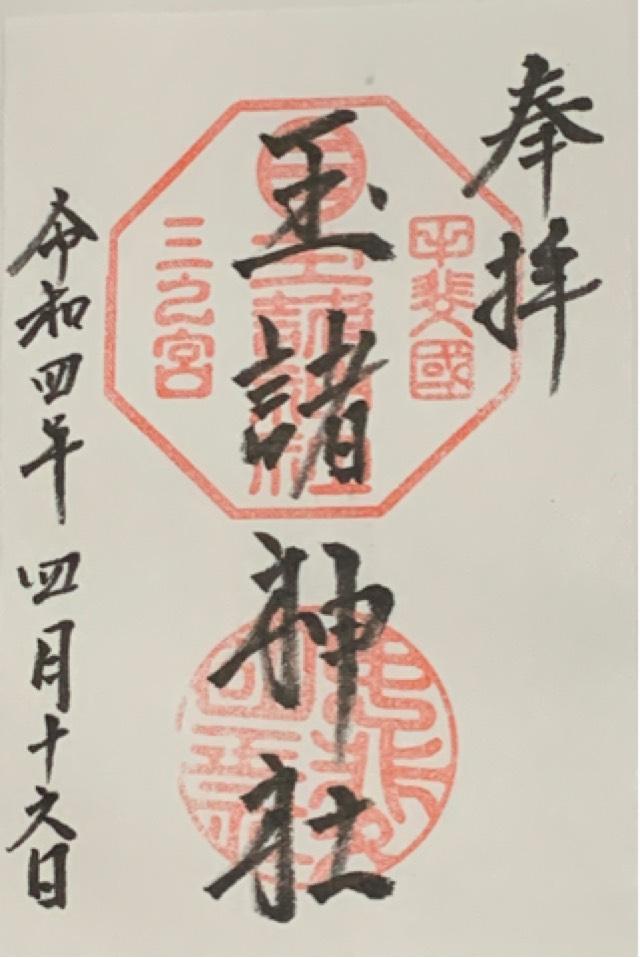 奉拝
甲斐國
玉諸神社
三之宮
令和四年四月十六日